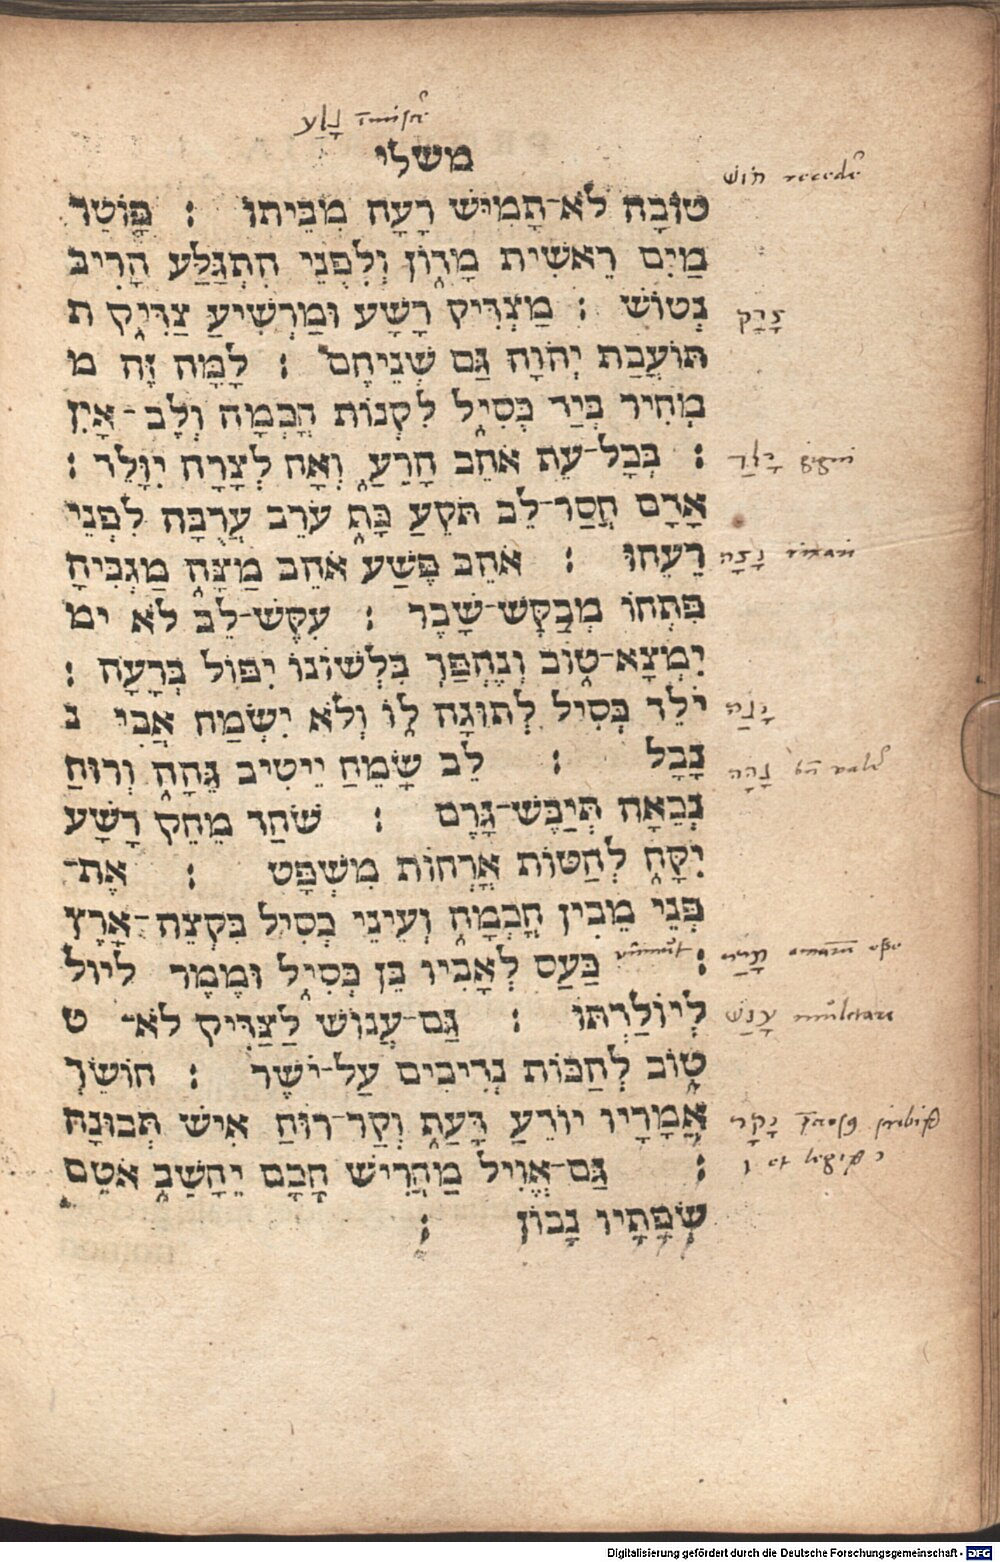 משלי
טוֹבָה לֹא־תָמִישׁ רָעָה מִבֵּיתוֹ : פּוֹטֵר
מַיִם רֵאשִׁית מָדוֹן וְלִפְנֵי הִתְגַּלַּע הָרִיב
נְטוֹשׁ : מַצְדִּיק רָשָׁע וּמַרְשִׁיעַ צַדִּיק ת
תּוֹעֲבַת יְהֹוָה גַּם שְׁנֵיהֶם : לָמָּה זֶּה מ
מְחִיר בְּיַד כְּסִיל לִקְנוֹת חָכְמָה וְלֶב־אָיִן
: בְּכָל־עֵת אֹהֵב הָרֵעַ וְאָח לְצָרָה יִוָּלֵד :
אָדָם חֲסַר־לֵב תֹּקֵעַ כָּף עֹרֵב עֲרֻבָּה לִפְנֵי
רֵעֵהוּ : אֹהֵב פֶּשַׁע אֹהֵב מַצָּה מַגְבִּיהַּ
פִּתְחוֹ מְבַקֶּשׁ־שָׁבֶר : עִקֶּשׁ־לֵב לֹא ימ
יִמְצָא־טוֹב וְנֶהְפַּךְ בִּלְשׁוֹנוֹ יִפּוֹל בְּרָעָה :
יֹלֵד כְּסִיל לְתוּגָה לוֹ וְלֹא יִשְׂמַח אֲבִי נ
נָבָל : לֵב שָׂמֵחַ יֵיטִיב גֵּהָה וְרוּחַ
נְכֵאָה תְּיַבֶּשׁ־גָּרֶם : שֹׁחַד מֵחֵק רָשָׁע
יִקָּח לְהַטּוֹת אָרְחוֹת מִשְׁפָּט : אֶת־
פְּנֵי מֵבִין חָכְמָה וְעֵינֵי כְסִיל בִּקְצֵה־אָרֶץ
: כַּעַס לְאָבִיו בֵּן כְּסִיל וּמֶמֶר ליול
לְיוֹלַדְתּוֹ : גַּם־עֲנוֹשׁ לַצַּדִּיק לֹא־ ט
טוֹב לְהַכּוֹת נְדִיבִים עַל־יֹשֶׁר : חוֹשֵׂךְ
אֲמָרָיו יוֹדֵעַ דָּעַת וְקַר־רוּחַ אִישׁ תְּבוּנָה
: גַּם־אֱוִיל מַחֲרִישׁ חָכָם יֵחָשֵׁב אֹטֵם
שְׂפָתָיו נָבוֹן :
recede
יָלַד gigni
נָצָה rixari
יָגָה
עָנַשׁ mulctare
Digitalisierung gefördert durch die Deutsche Forschungsgemeinschaft - DFG